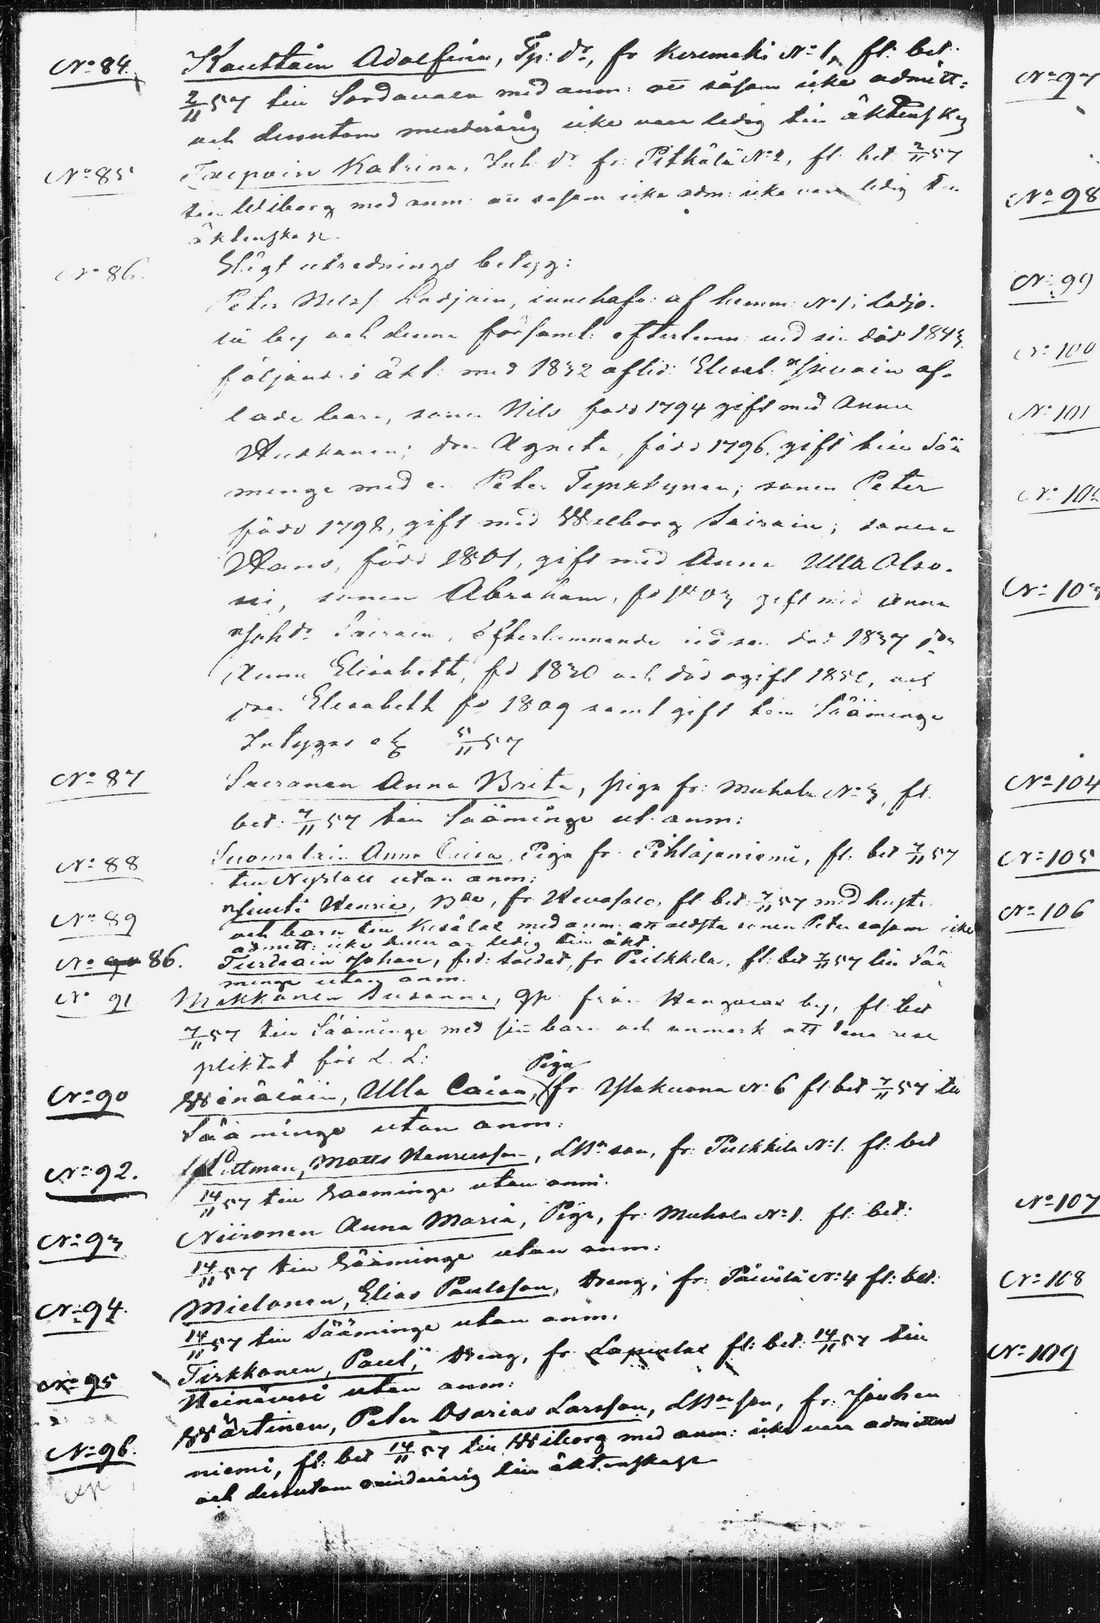 No 84. Kauttain Adolfina, Tp: dr, fr Keremaki No 1, fl. bet:
2/11 57 till Sordavala med anm: att såsom icke admitt:
och dessutom minderårig icke vara ledig till äktenskap
No 85 Taipain Katrina, Inh: dr fr: Pitkälä No 2, fl. bet 2/11 57
till Wiborg med anm: att såsom icke adm: icke vara ledig till
äktenskap.
No 86. Slägt utrednings betyg:
Peter Nilsf. Ladjain, innehafv: af hemm: No 1 i Ladjo-
la by och denna församl: efterlemn: vid sin död 1843
följande i äkt: med 1832 aflid: Elisab: af-
lade barn, sonen Nils född 1794 gift med Anna
Hukkanen; dr Agneta, född 1796, gift till Sää
minge med en Peter ; sonen Peter
född 1798, gift med Wallborg Sairain; sonen
Hans, född 1801, gift med Anna Ulla Olso-
ni, sonen Abraham, fd 1803 gift med Anna
Joh: dr Sairain, efterlemnande vid sin död 1837 dr
Anna Elisabeth, fd 1830 och död ogift 1850, och
dr Elisabeth fd 1809 samt gift till Sääminge
Intygas 5/11 57
No 87 Sairanen Anna Brita, piga fr: Muhola No 3, fl.
bet: 7/11 57 till Sääminge ut. anm:
No 88 Suomalain Anna Caisa, Piga fr. Pihlajaniemi, fl. bet 7/11 57
till Nyslott utan anm:
No 89 Henric, Bde, fr. Hevossalo, fl. bet. 7/11 57 med hustr.
och barn till Kesälax med anm. att äldsta sonen Peter såsom icke
admitt: icke heller är ledig till äkt.
No 90 86. Turtiain Johan, f. d: soldat, fr Pulkkila, fl. bet 7/11 57 till Sää
minge utan anm.
No 91 Makkonen Susanna, gp. från Hangaslax by, fl. bet
7/11 57 till Sääminge med sju barn och anmärk att vara
pliktat för L. L:
Piga
No 90 Winäläin, Ulla Caisa, fr No 6 fl bet 7/11 57 till
Sääminge utan anm:
No 92. Pittman, Matts Henricsson, LBn son, fr. Pulkkila No 1. fl. bet
14/11 57 till Sääminge utan anm:
No 93 Niironen Anna Maria, Piga, fr: Muhola No 1. fl. bet:
14/11 57 till Sääminge utan anm:
No 94. Mielonen, Elias Paulsson, Dreng, fr: No 4 fl: bet:
14/11 57 till Sääminge utan anm.
No 95 Tirkkonen, Paul, Dreng, fr. Lapinlax fl: bet. 14/11 57 till
Heinävesi utan anm:
No 96. Wärtinen, Peter Larsson, LBn son, fr: Jouhen
niemi, fl: bet 14/11 57 till Wiborg med anm: icke vara admitterad
och dessutom minderårig till äktenskap
No 97
No 98
No 99
No 100
No 101
No 102
No 103
No 104
No 105
No 106
No 107
No 108
No 109